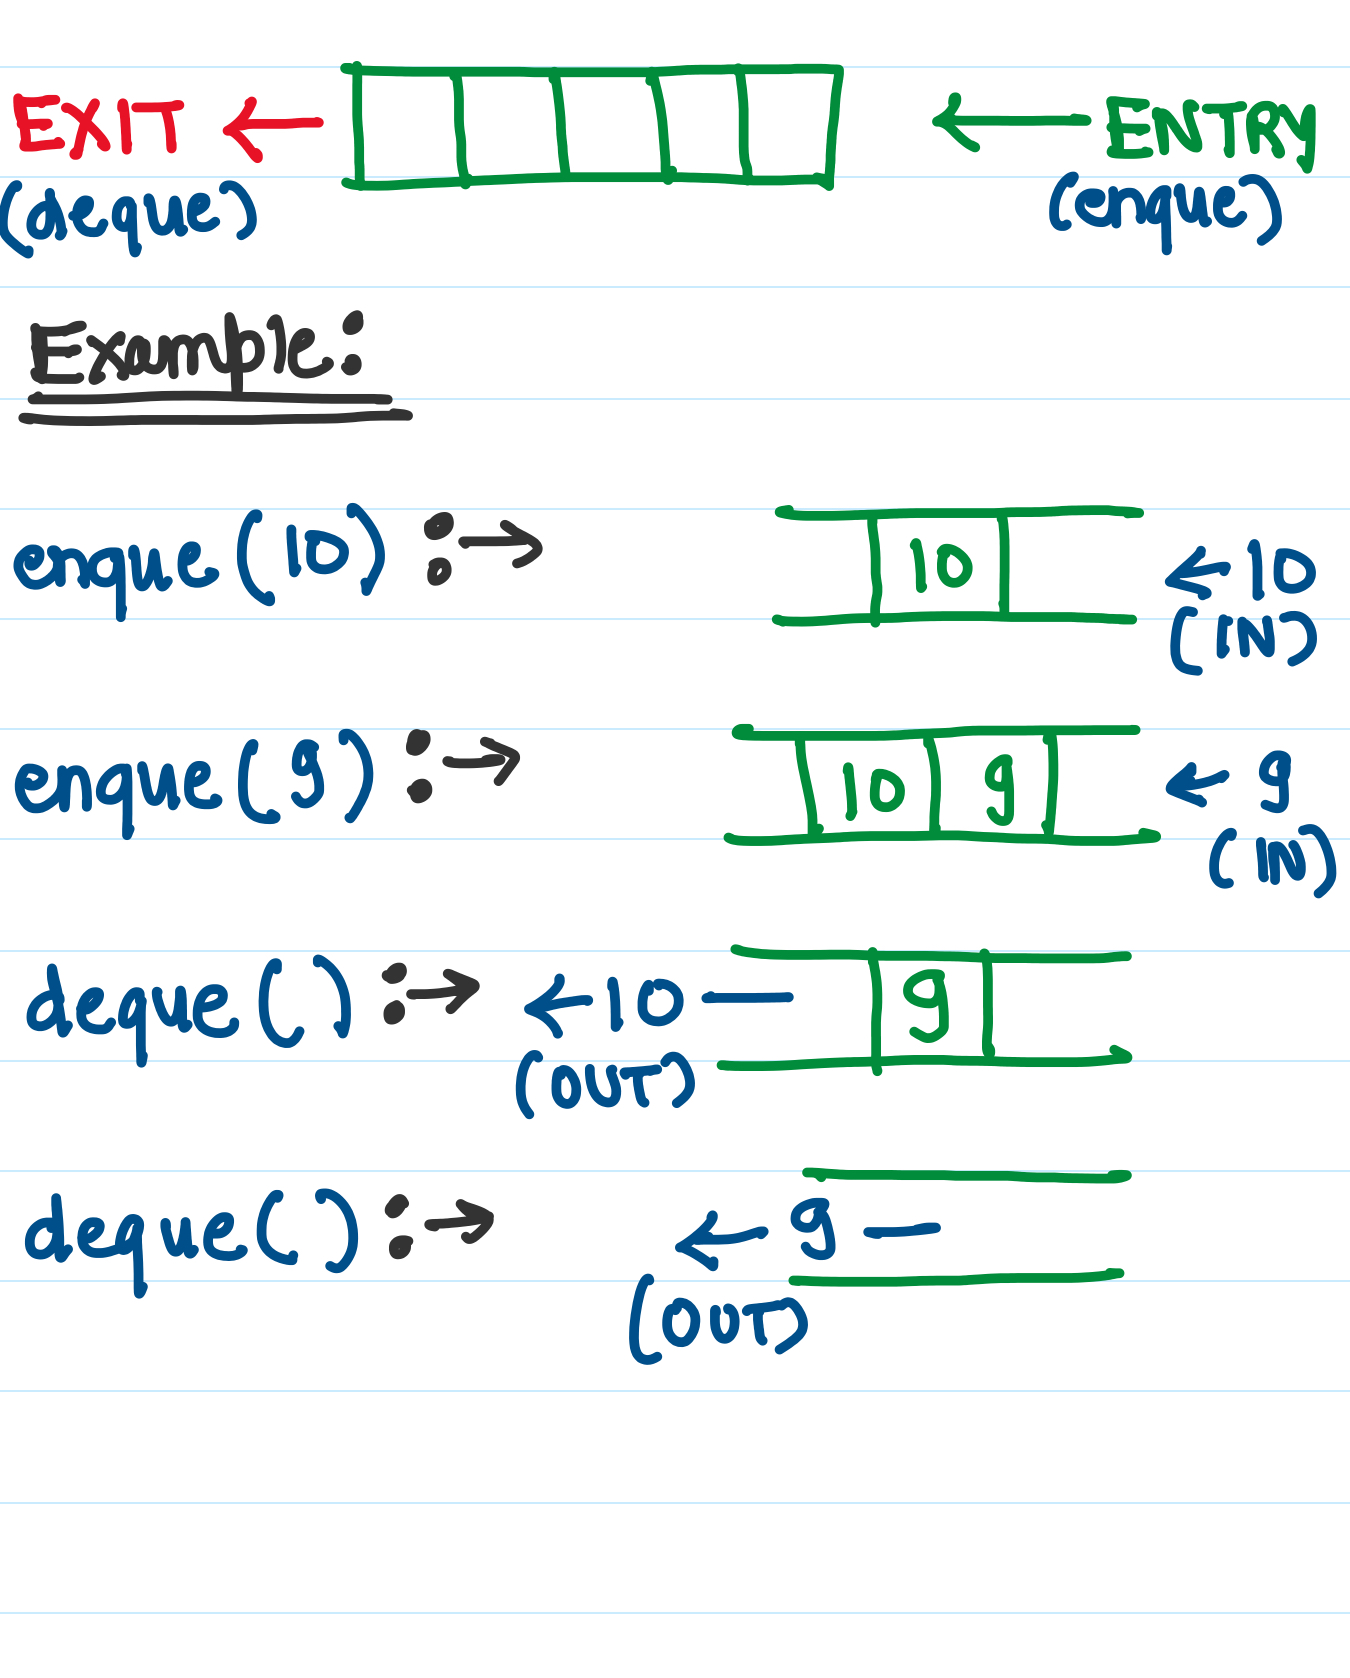 EXIT ← ← ENTRY
(deque) (enque)
Example:
enque(10) :→ 10 ← 10
(IN)
enque(9) :→ 10 9 ← 9
(IN)
deque() :→ ← 10 — 9
(OUT)
deque() :→ ← 9 —
(OUT)